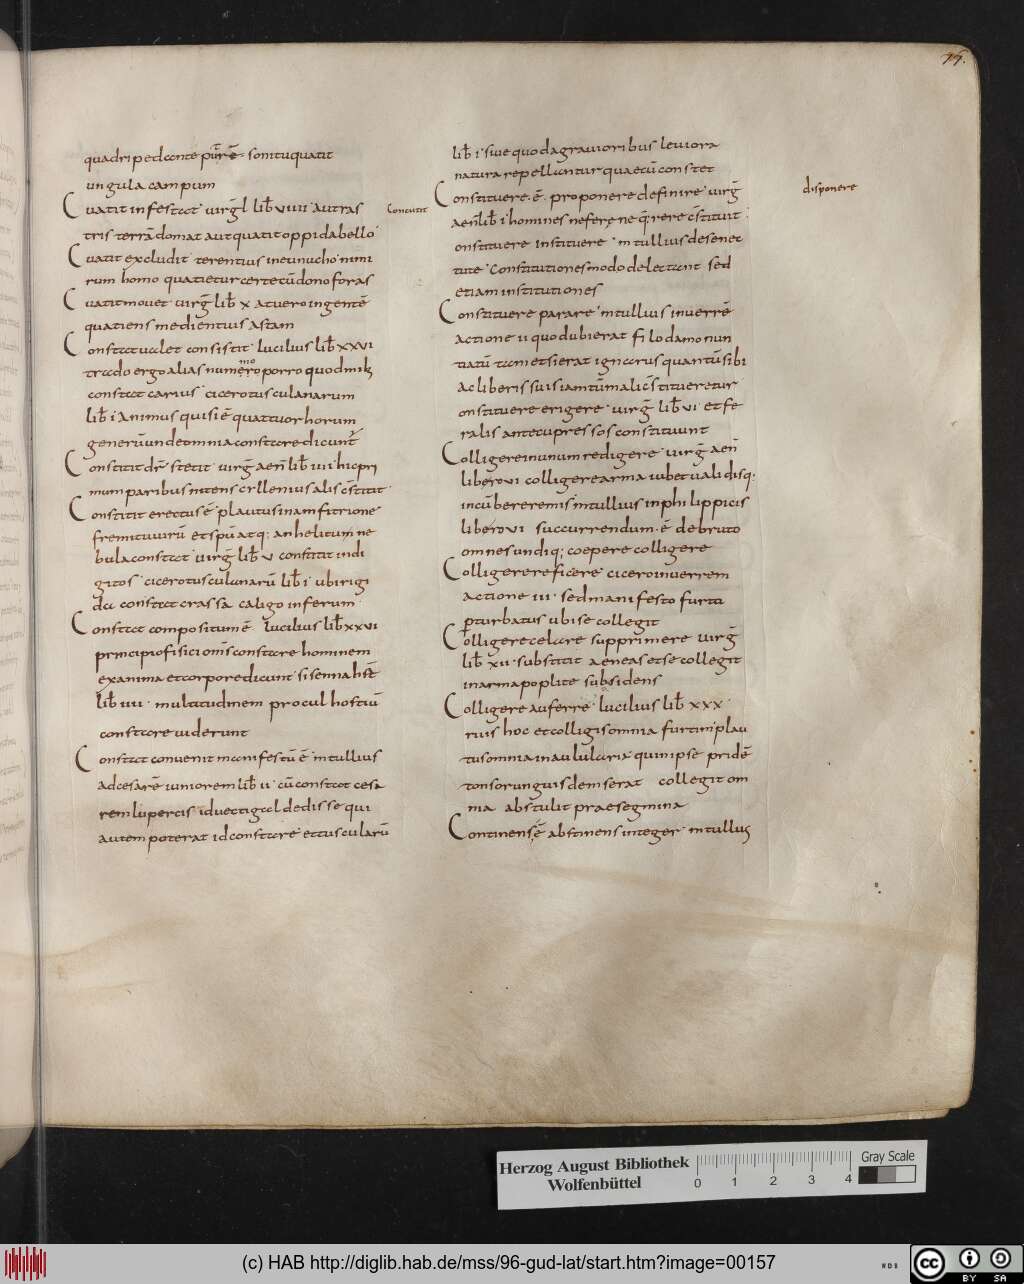 77.
quadripedante putrē sonitu quatit
ungula campum
Cuatit infestat virgl lib̄ viiii autras
tris terrā domat aut quatit oppida bello
Concutit
Cuatit excludit terentius ineunucho nimi
rum homo quatietur certe cū dono foras
Cuatit mouet virḡ lib̄ x at uero ingentē
quatiens medientius astam
Constat ualet consistit lucilius lib̄ xxvi
trado ergo alias numero porro quod
mo
constat carius cicero tusculanarum
lib̄ i animus qui siē quattuor horum
generū unde omnia constare dicunt
Constitit dr̄ stetit virḡ aen̄ lib̄ iiii hic pri
mum paribus nitens cyllenius alis cstitit
Constitit erectus ē plautus in amfitrione
fremitu uirū et spū atq; anhelitum ne
bula constat virḡ lib̄ v constitit indi
gitos cicero tusculanarū lib̄ i ubi rigi
da constat crassa caligo inferum
Constat compositum ē lucilius lib̄ xxvi
principio fisici om̄s constare hominem
ex anima et corpore dicunt sisenna hsē
lib̄ iiii multitudinem procul hostiū
constare uiderunt
Constat conuenit manifestū ē m tullius
ad cesarē iuniorem lib̄ ii cū constat cesa
rem lupercis id uectigal dedisse qui
autem poterat id constare et tuscularū
lib̄ i siue quod a grauioribus leuiora
natura repelluntur quae cū constet
disponere
Constituere ē proponere definire virḡ
aen̄ lib̄ i homines ne feręne q̄rere cstituit
onstituere instituere m tullius de senec
tute Constitutiones modo delectant sed
etiam institutiones
Constituere parare m tullius in uerrē
actione ii quod ubi erat filodamo nun
tiatū tam etsi erat ignarus quantū sibi
ac liberis suis iam tū mali cstitueretur
onstituere erigere virḡ lib̄ vi et fe
ralis ante cupressos constituunt
Colligere in unum redigere virḡ aen̄
libero vi colligere arma iubet ualidisq;
incūbere remis m tullius in philippicis
libero vi succurrendum ē de bruto
omnes undiq; coepere colligere
Colligere reficere cicero in uerrem
actione iii sed manifesto furta
pturbatus ubi se collegit
Colligere celare supprimere virḡ
lib̄ xii substitit aeneas et se collegit
in arma poplite subsidens
Colligere auferre lucilius lib̄ xxx
rius hoc et colligis omnia furtim plau
tus omnia in aulularia quin ipse pridē
tonsor unguis demserat collegit om
nia abstulit praesegmina
Continens ē abstinens integer m tullius
Herzog August Bibliothek
Wolfenbüttel
0 1 2 3 4
Gray Scale
(c) HAB http://diglib.hab.de/mss/96-gud-lat/start.htm?image=00157
WDB
cc BY SA